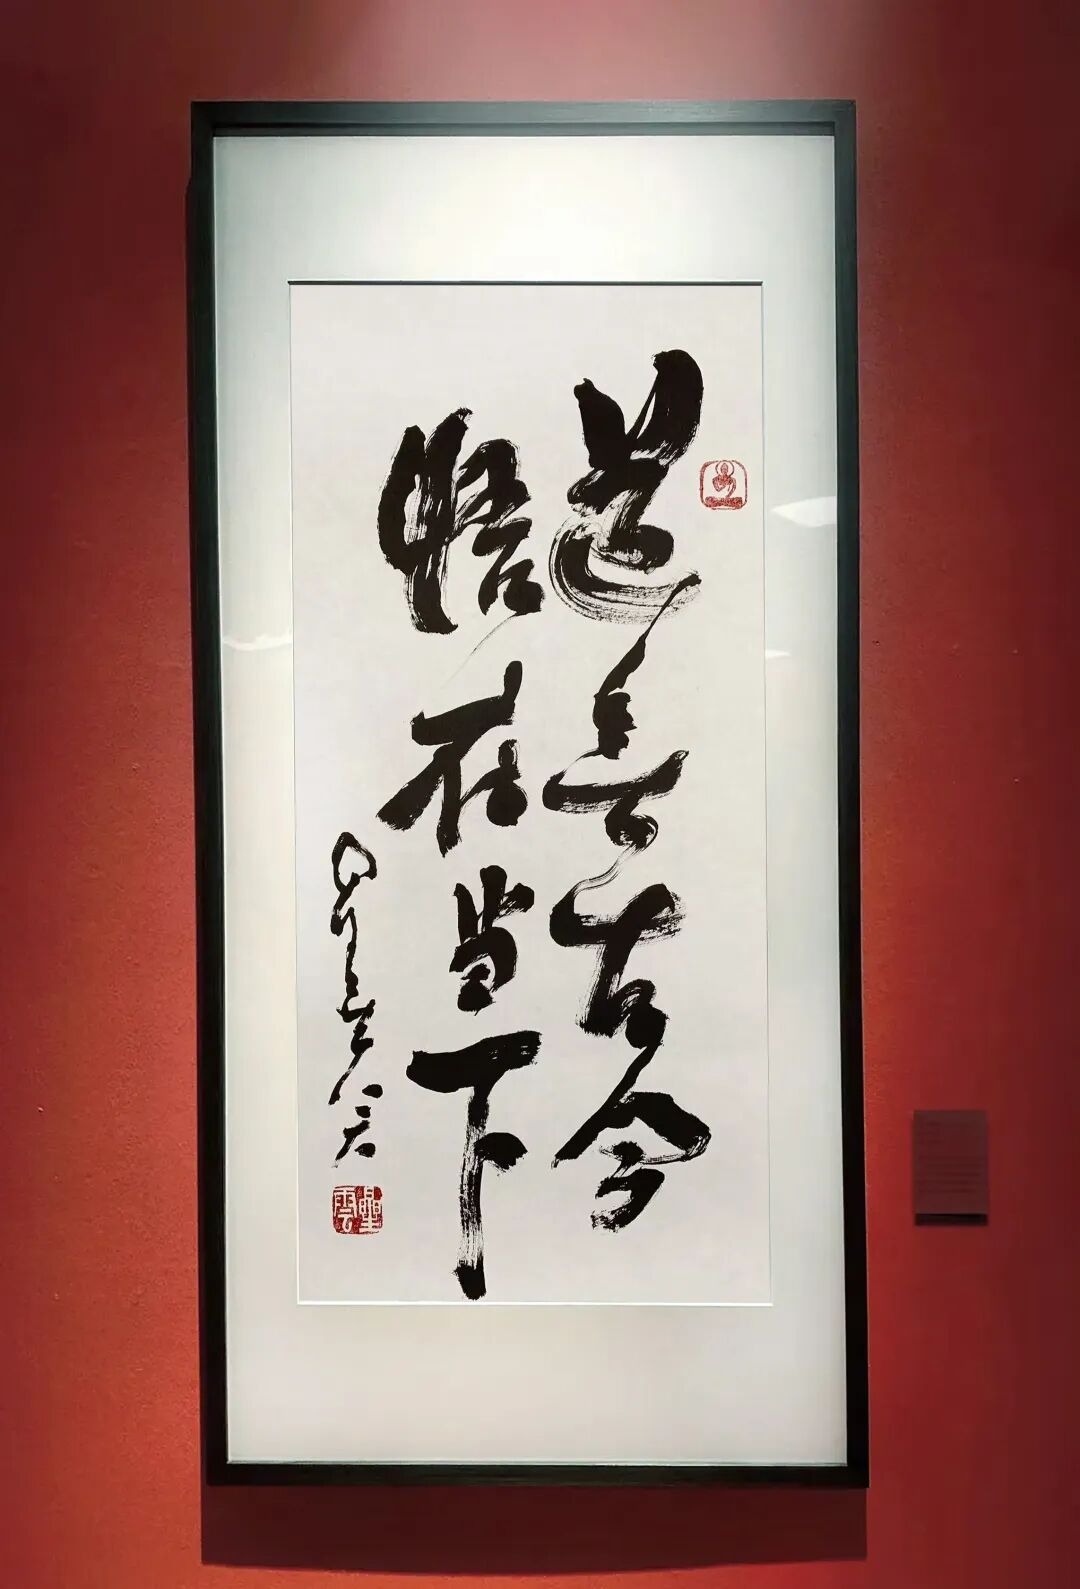 道無古今
悟在當下
星雲
星雲